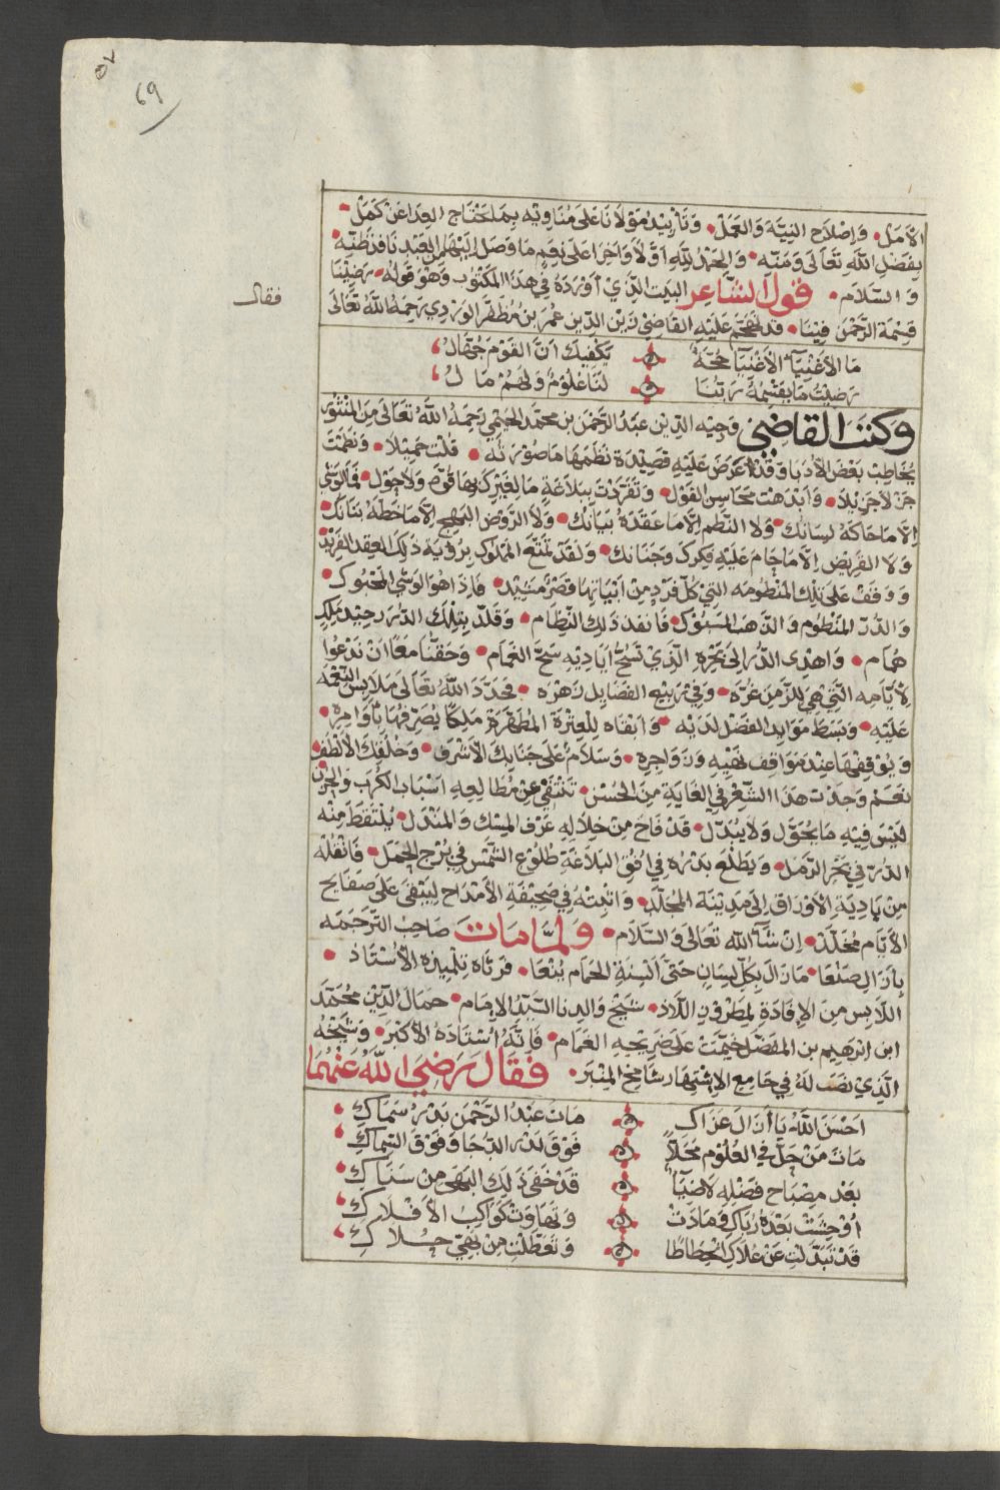 69
الأمل • وإصلاح النية والعمل • وتأييد مولانا على مناويه بما يحتاج العدا عن كمل •
بفضل الله تعالى ومنه • والحمد لله أولا وآخرا على نعم ما وصل إليها من العبد نا فرطنه •
والسلام • قول الشاعر البيت الذي أورده في هذا المكتوب وهو قوله • رضينا
فقال
قسمة الرحمن فينا • قد تهجم عليه القاضي زين الدين عمر بن مظفر الوردي رحمه الله تعالى
ما الأغنياء الأغنيا محجة يكفيك أن القوم جهال
رضيت ما يقسمه ربنا لنا علوم ولهم مال
وكتب القاضي وجيه الدين عبد الرحمن بن محمد الحيمي رحمه الله تعالى من المنثور
يخاطب بعض الأدبا وقد عرض عليه قصيدة نظمها ما صورته • قلت جميلا • ونظمت
جزلا جزيلا • وأبدهت محاسن القول • وتفردت ببلاغة ما لغيرك بها قوة ولا حول • فما الوشي
إلا ما حاكه لسانك • ولا النظم إلا ما عقده بيانك • ولا الروض البهج إلا ما خطه بنانك
ولا القريض إلا ما حام عليه فكرك وجنانك • ولقد تمتع المملوك برؤية ذلك العقد الفريد
ووقف على تلك المنظومة التي كل فرد من أبياتها قصر مشيد • فإذا هو الوشي المحبوك •
والدر المنظوم والذهب المسبوك • فانفد ذلك النظام • وقلد بتلك الدرر جيد ملك
همام • واهدى الدر إلى بحره الذي تسح أياديه سح الغمام • وحقنا معا أن ندعوا
لأيامه التي هي للزمن غره • وفي ربيع الفضايل زهره • فجدد الله تعالى ملابس النعمه
عليه • وبسط موايد الفضل لديه • وأبقاه للعترة المطهرة ملكا يصرفها بأوامره •
ويوقفها عند مواقف نهيه وزواجره • وسلام على جنابك الأشرف • وخلقك الألطف •
نعم وجدت هذا الشعر في الغاية من الحسن • تنتفي عن مطالعه أسباب الكرب والحزن
ليس فيه ما يحول ولا يبدل • قد فاح من خلاله عرف المسك والمندل • يلتقط منه
الدر في بحر الرمل • ويطلع بدره في افق البلاغة طلوع الشمس في برج الحمل • فانقله
من بادية الأوراق إلى مدينة المجلد • واثبته في صحيفة الأمداح ليبقى على صفايح
الأيام مخلد • إن شاء الله تعالى والسلام • ولما مات صاحب الترجمه
بازال صنعا • ما زال بكل لسان حتى ألسنة الحمام ينعا • فرثاه تلميذه الأستاذ •
اللابس من الإفادة لمطرف اللاذ • شيخ والدنا السيد الإمام • جمال الدين محمد
ابن إبرهيم بن المفضل خيمت على ضريحه الغمام • فإنه أستاذه الأكبر • وشيخه
الذي نصب له في جامع الاشتهار شامخ المنبر • فقال رضي الله عنهما
احسن الله يا أزال عزاك مات عبد الرحمن بدر سماك
مات من جل في العلوم محلا فوق بدر الدجا وفوق السماك
بعد مصباح فضله لا ضياء قد خفي ذلك البهى من سناك
أوحشت بعده رباك ومادت وتهاوت كواكب الأفلاك
قد تبدلت عن علاك انحطاطا وتعطلت من بهي حلاك